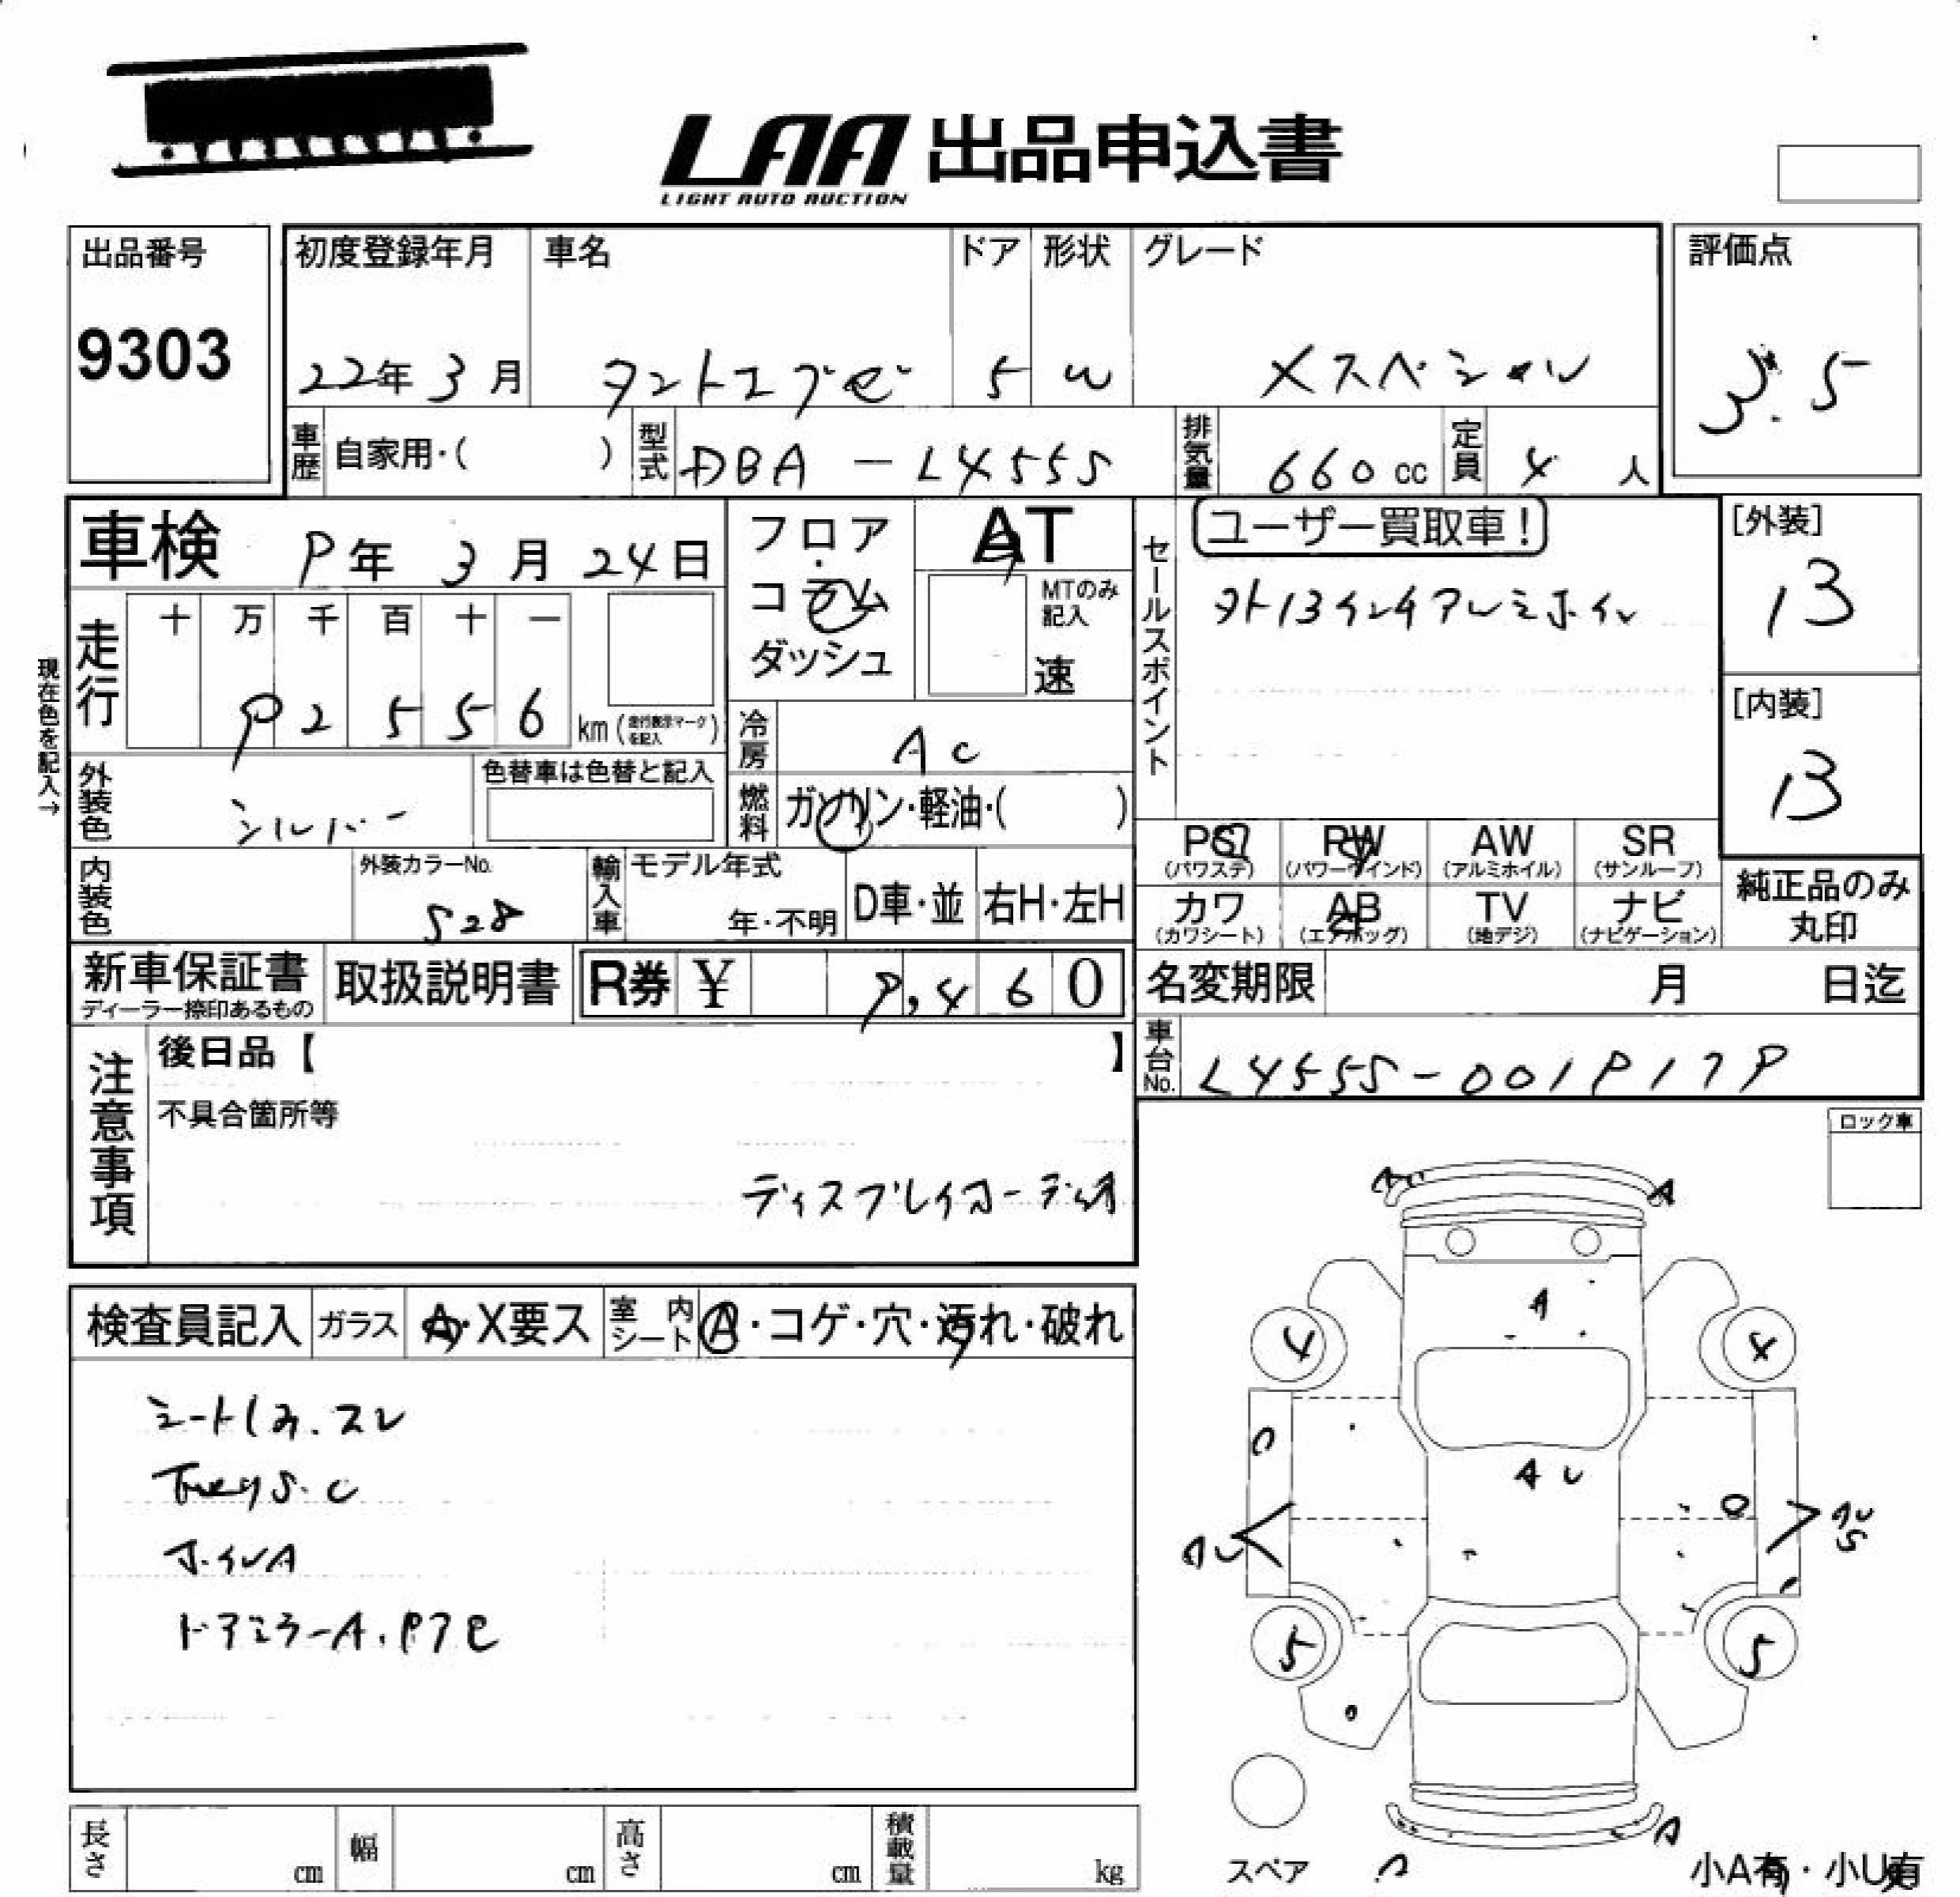 LAA 出品申込書
LIGHT AUTO AUCTION
出品番号
9303
初度登録年月
22年3月
車名
タントエグゼ
ドア
5
形状
W
グレード
Xスペシャル
評価点
3.5
車歴 自家用・( )
型式 DBA-L455S
排気量 660cc
定員 4人
車検 9年3月24日
フロア・コラム
ダッシュ
AT
MTのみ記入
速
セールスポイント
ユーザー買取車!
外13インチアルミホイル
[外装]
13
[内装]
13
現在色を記入→
走行 十 万 千 百 十 一
92556 km (走行表示マークを記入)
冷房 AC
燃料 ガソリン・軽油・( )
外装色 シルバー
色替車は色替と記入
内装色
外装カラーNo.
S28
輸入車 モデル年式
年・不明
D車・並 右H・左H
PS (パワステ)
PW (パワーウインド)
AW (アルミホイル)
SR (サンルーフ)
カワ (カワシート)
AB (エアバッグ)
TV (地デジ)
ナビ (ナビゲーション)
純正品のみ
丸印
新車保証書
ディーラー捺印あるもの
取扱説明書
R券 ¥ 9,460
名変期限 月 日迄
車台No. L455S-0019179
注意事項
後日品【 】
不具合箇所等
ディスプレイオーディオ
ロック車
検査員記入
ガラス A・X要ス
室内シート A・コゲ・穴・汚れ・破れ
シートしみ.スレ
下廻りS.C
ホイルA
ドアミラーA.
A
A
A
4
4
A U
A U
5
5
A
スペア
小A有・小U有
長さ cm
幅 cm
高さ cm
積載量 kg